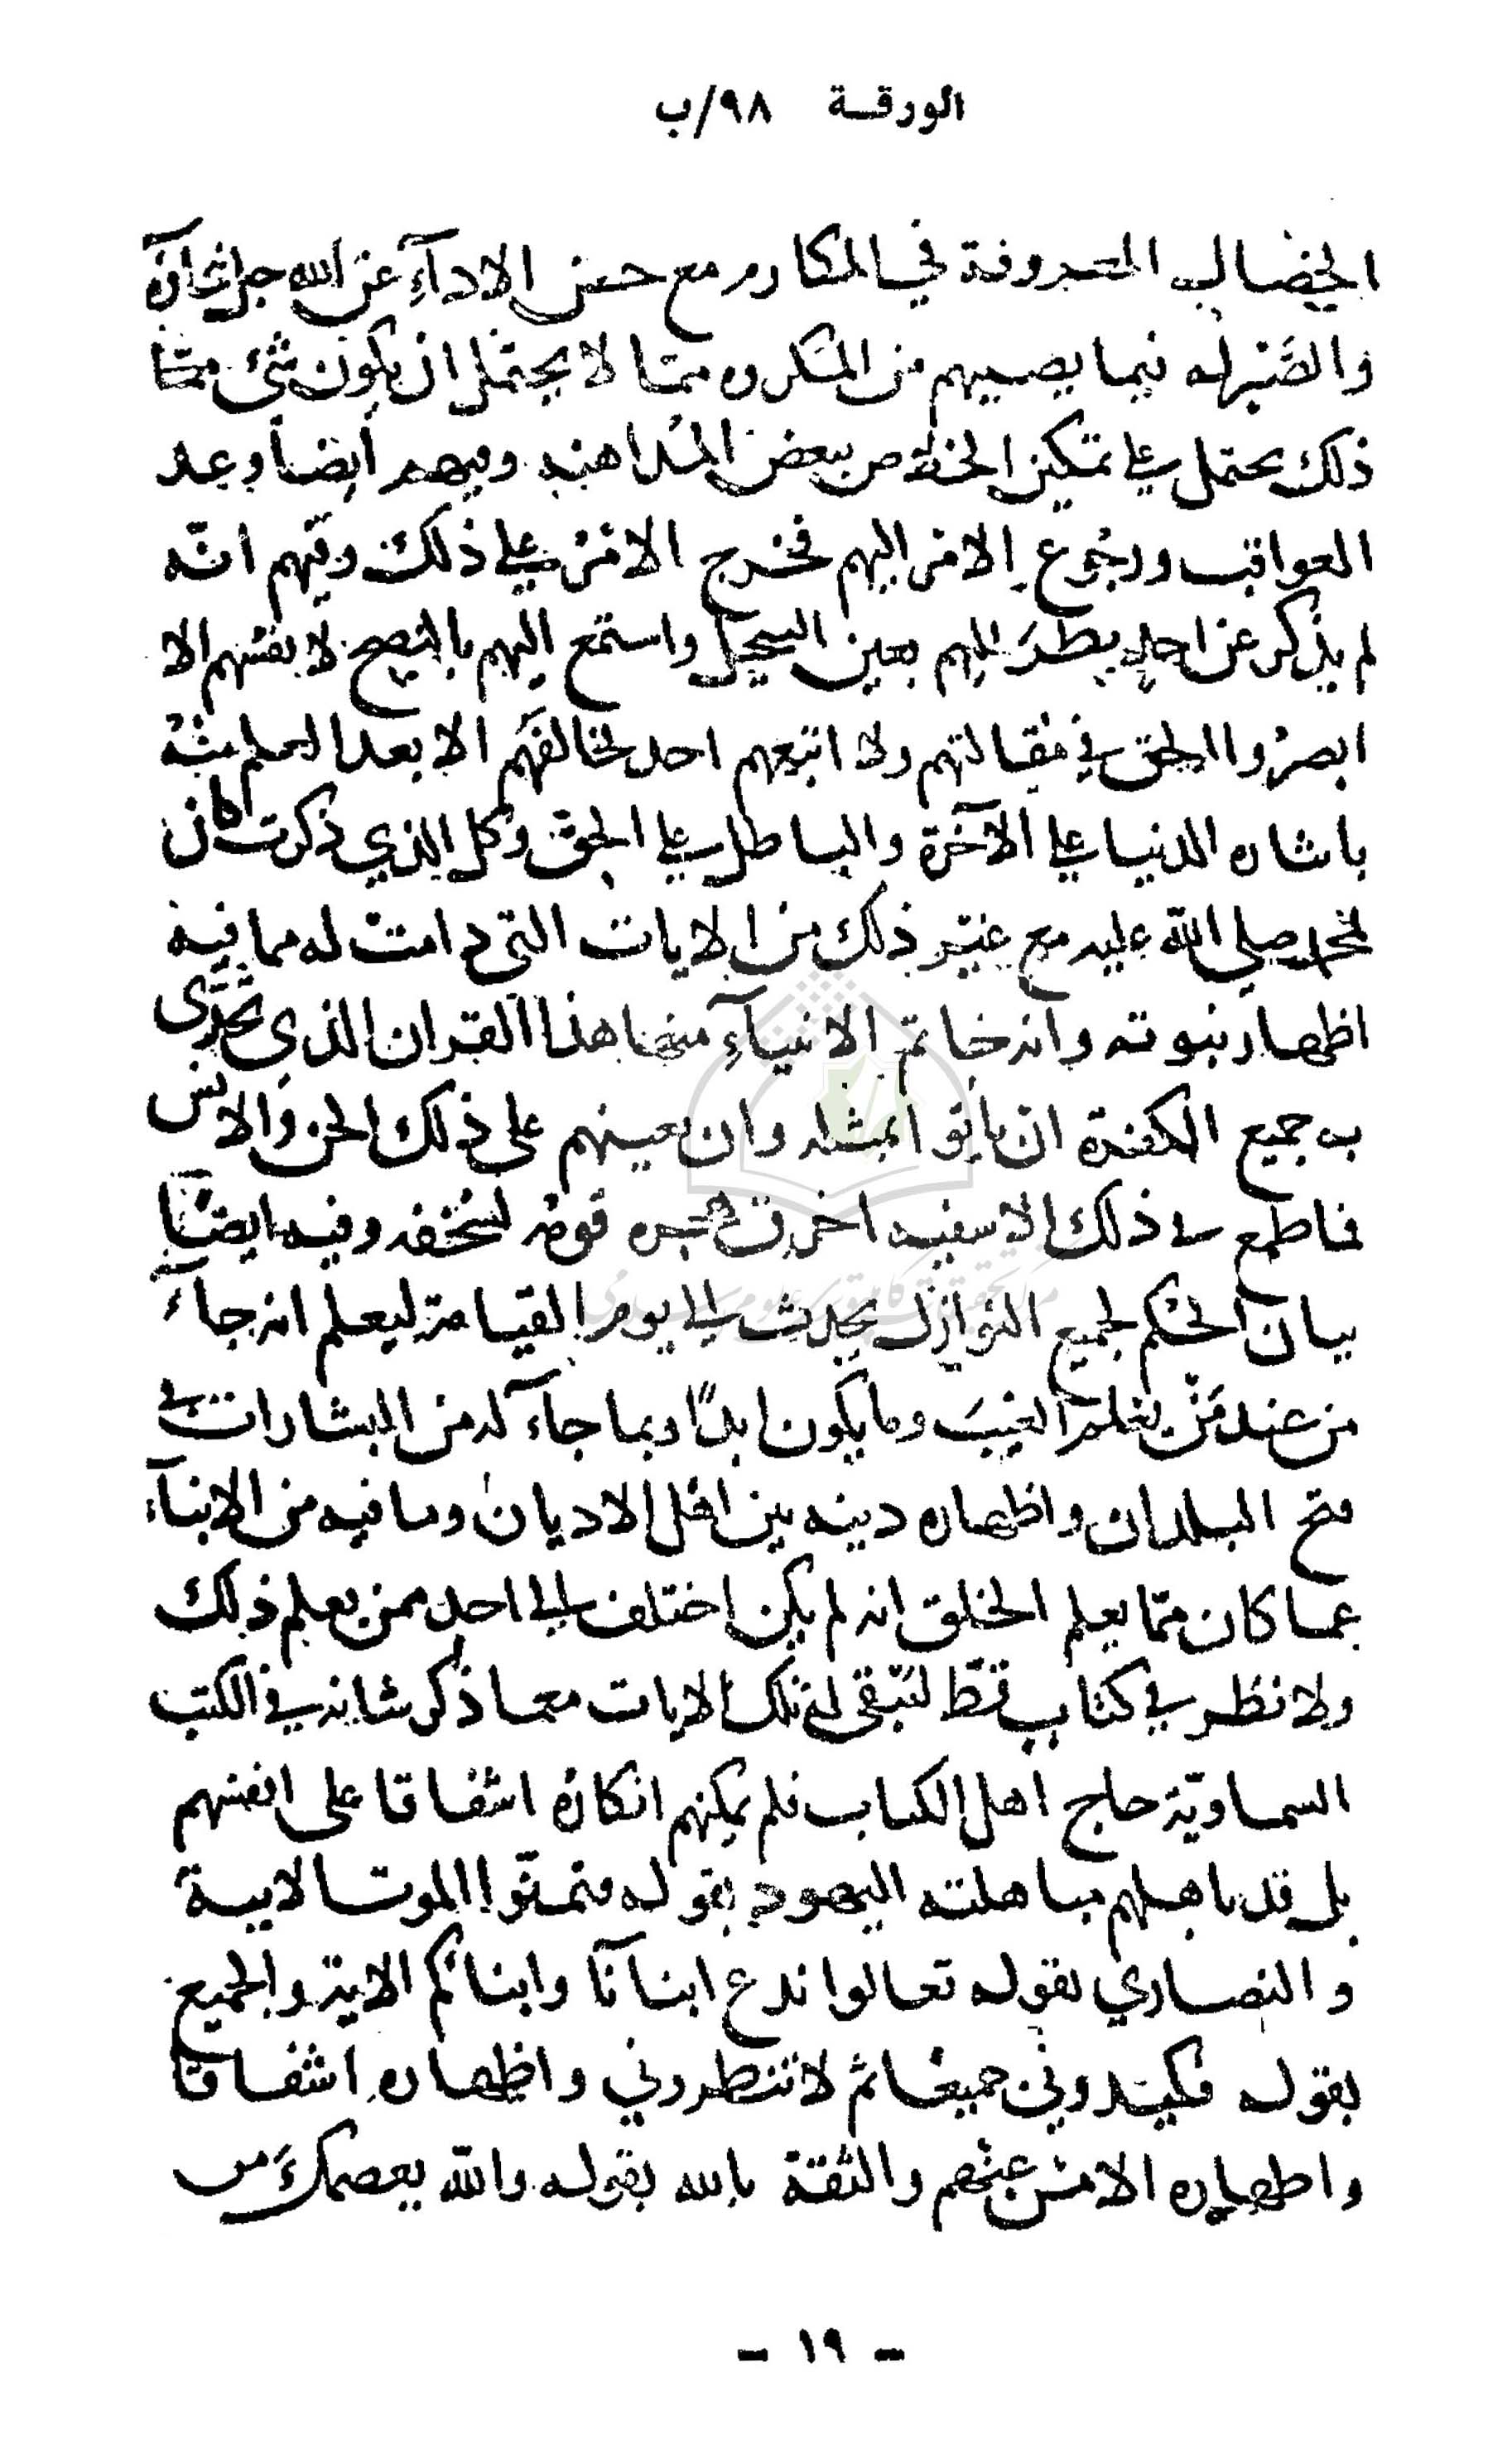 الورقة ٩٨/ب
الخصال المعروفة في المكارم مع حسن الاداء عن الله جل ثناؤه
والصبر له فيما يصيبهم من المكروه مما لا يحتمل ان يكون شئ مما
ذلك يحتمل على تمكين من بعض المداهنه وفيهم ايضا وعد
العواقب ورجوع الامر اليهم فخرج الامر على ذلك وفيهم انه
لم يذكر عن احد ينظر اليهم بعين واستمع اليهم بالنصح الا
ابصروا الحق في مقالتهم ولا اتبعهم احد لمخالفهم الا بعد العلم منه
بايثاره الدنيا على الآخرة والباطل على الحق وكل الذي ذكرت كان
لمحمد صلى الله عليه مع غير ذلك من الايات التي دامت له مما فيه
اظهار نبوته وانه خاتم الانبياء منها هذا القران الذي تحدى
به جميع الكفرة ان ياتوا بمثله وان يعينهم على ذلك الجن والانس
فما طمع في ذلك الا سفيه اخرق قومه لسخفه وفيه ايضا
بيان الحكم لجميع النوازل يحدث الى يوم القيامة ليعلم انه جاء
من عند من يعلم الغيب وما يكون ابدا وبما جاء له من البشارات في
فتح البلدان واظهاره دينه بين اهل الاديان وما فيه من الانباء
عما كان مما يعلم الخلق انه لم يكن اختلف الى احد ممن يعلم ذلك
ولا نظر في كتاب قط تلك الايات معما ذكر شانه في الكتب
السماوية حاج اهل الكتاب فلم يمكنهم انكاره اشفاقا على انفسهم
بل قد باهلهم مباهلته اليهود بقوله فتمنوا الموت الاية
والنصارى بقوله تعالوا ندع ابنآنا وابنائكم الاية والجميع
بقوله فكيدوني جميعا ثم لا تنظروني واظهاره اشفاقا
واظهاره الامن عنهم والثقة بالله بقوله والله يعصمك من
- ١٩ -